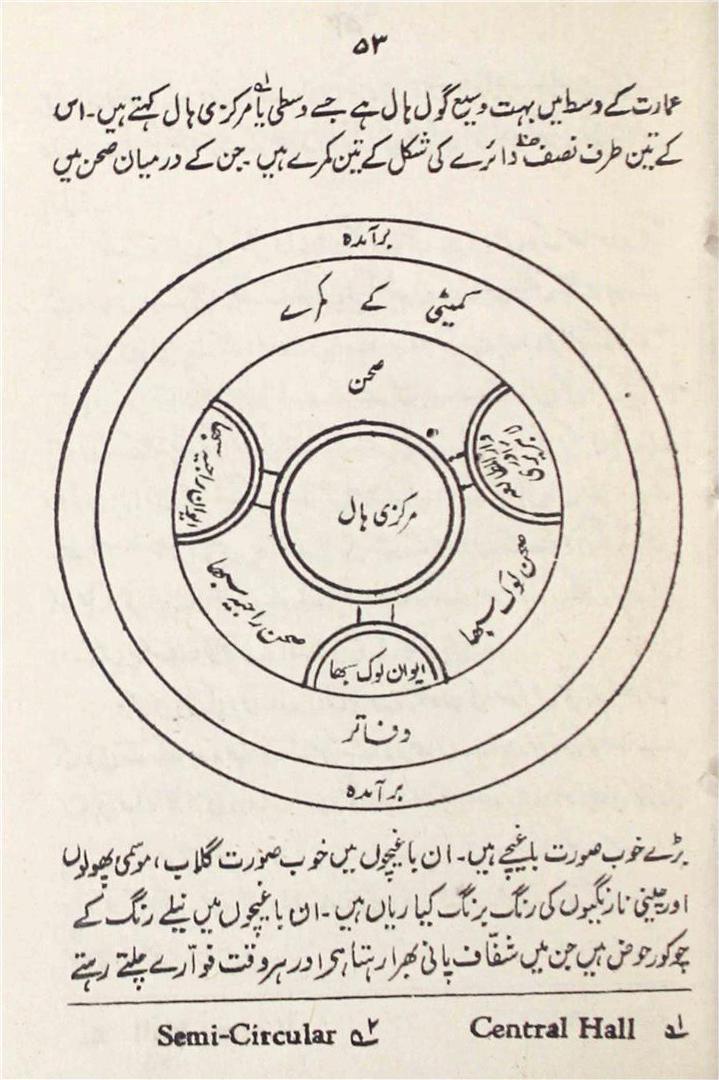 ۵۳
عمارت کے وسط میں بہت وسیع گول ہال ہے جسے وسطی یا مرکزی ہال ۱؎ کہتے ہیں۔ اس
کے تین طرف نصف دائرے ۲؎ کی شکل کے تین کمرے ہیں۔ جن کے درمیان صحن میں
برآمدہ
کمیٹی کے کمرے
صحن
مرکزی ہال
ایوان راجیہ سبھا
صحن لوک سبھا
صحن راجیہ سبھا
ایوان لوک سبھا
دفاتر
برآمدہ
بڑے خوب صورت باغیچے ہیں۔ ان باغیچوں میں خوب صورت گلاب، موسمی پھولوں
اور چینی نارنگیوں کی رنگ برنگ کیاریاں ہیں۔ ان باغیچوں میں نیلے رنگ کے
چوکور حوض ہیں جن میں شفّاف پانی بھرا رہتا ہے اور ہر وقت فوّارے چلتے رہتے
۱؎ Central Hall ۲؎ Semi-Circular